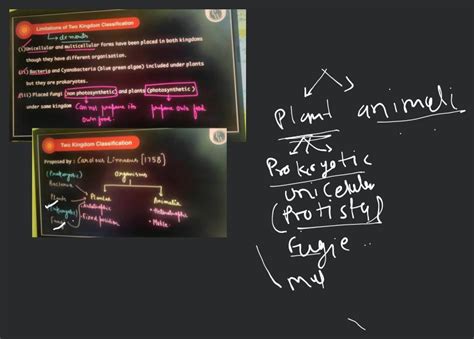 Limitations of Two Kingdom Classification
↳ demerits
(i) Unicellular and multicellular forms have been placed in both kingdoms
though they have different organisation.
(ii) Bacteria and Cyanobacteria (blue green algae) included under plants
but they are prokaryotes.
(iii) Placed fungi (non photosynthetic) and plants (photosynthetic)
under same kingdom
Can not prepare its
own food.
prepare own food
Two Kingdom Classification
Proposed by : Carolus Linnaeus [1758]
organisms
(Prokaryotic)
Bacteria
Plants
(Eukaryotic)
Fungi
Plantae
• Autotrophic
• Fixed position
Animalia
• Heterotrophic
• Motile
Plant animali
Prokryotic
unicelular
(Protista)
Fugie